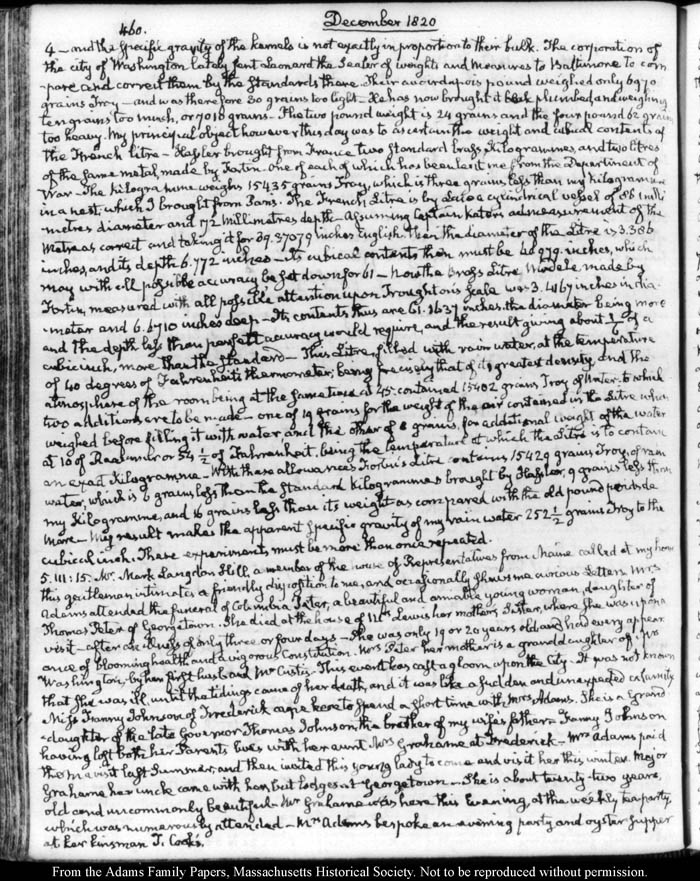 460.
December 1820
4 — and the specific gravity of the kernels is not exactly in proportion to their bulk. The corporation of
the city of Washington lately sent Leonard the Sealer of weights and Measures to Baltimore to com
pare and correct them by the Standards there. Their avoirdupois pound weighed only 6970
grains Troy — and was therefore 30 grains too light. He has now brought it back plumbed and weighing
ten grains too much, or 7010 grains — The two pound weight is 24 grains and the four pound 62 grains
too heavy. My principal object however this day was to ascertain the weight and cubical contents of
the French litre — Hassler brought from France two Standard brass Kilogrammes, and two litres
of the same metal, made by Fortin. One of each of which has been lent me from the Department of
War — The Kilogramme weighs 15435 grains Troy, which is three grains less than my Kilogramme
in a nest, which I brought from Paris. The French Litre is by Law a cylindrical vessel of 86 milli
metres diameter and 172 Millimetres depth — Assuming Captain Katers admeasurement of the
Metre as correct and taking it for 39.37079 inches English. Then the diameter of the Litre is 3.386
inches, and its depth 6.772 inches — Its cubical contents then must be 60.979. inches, which
may with all possible accuracy be set down for 61 — Now the brass Litre Modele made by
Fortin, measured with all possible attention upon Troughton's Scale was 3.467 inches in dia
-meter and 6.6710 inches deep — Its contents thus are 61.1637 inches. the diameter being more
and the depth less than perfect accuracy would require, and the result giving about 1/6 of a
cubic inch, more than the Standard — This Litre, filled with rain water, at the temperature
of 40 degrees of Fahrenheit's thermometer; being precisely that of its greatest density, and the
atmosphere of the room being at the same time at 45. contained 15402 grains Troy of Water. to which
two additions are to be made — one of 19 grains for the weight of the air contained in the Litre when
weighed before filling it with water, and the other of 8 grains, for additional weight of the water
at 10 of Reaumur or 54 1/2 of Fahrenheit, being the temperature at which the Litre is to contain
an exact Kilogramme — With these allowances Fortin's Litre contains 15429 grains Troy of rain
water, which is 6 grains less than the Standard Kilogrammes brought by Hassler, 9 grains less than
my Kilogramme, and 16 grains less than its weight as compared with the old pound poids de
marc — My result makes the apparent specific gravity of my rain water 252 1/2 grains Troy to the
cubical inch. These experiments must be more than once repeated.
5. III:15. Mr. Mark Langdon Hill, a member of the house of Representatives from Maine called at my house
this gentleman intimates a friendly disposition to me, and occasionally shews me curious Letters. Mrs
Adams attended the funeral of Columbia Peter, a beautiful and amiable young woman, daughter of
Thomas Peter of Georgetown. She died at the house of Mrs Lewis her mothers Sister, where She was upon a
visit — after an illness of only three or four days — She was only 19 or 20 years old and had every appear
ance of blooming health and a vigorous Constitution. Mrs Peter her mother is a grand daughter of Mrs
Washington, by her first husband Mr Custis — This event has cast a gloom upon the City — It was not known
that She was ill, until the tidings came of her death, and it was like a sudden and unexpected calamity
Miss Fanny Johnson of Frederick came here to spend a short time with Mrs Adams. She is a Grand
-daughter of the late Governor Thomas Johnson, the brother of my wife's father — Fanny Johnson
having lost both her Parents lives with her aunt Mrs Grahame at Frederick — Mrs Adams paid
them a visit last Summer, and then invited this young lady to come and visit her this winter. Major
Grahame her uncle came with her, but lodges at Georgetown — She is about twenty two years,
old and uncommonly beautiful — Mr Grahame was here this Evening, at the weekly tea party,
which was numerously attended — Mrs Adams bespoke an evening party and oyster supper
at her kinsman J. Cook's.
From the Adams Family Papers, Massachusetts Historical Society. Not to be reproduced without permission.